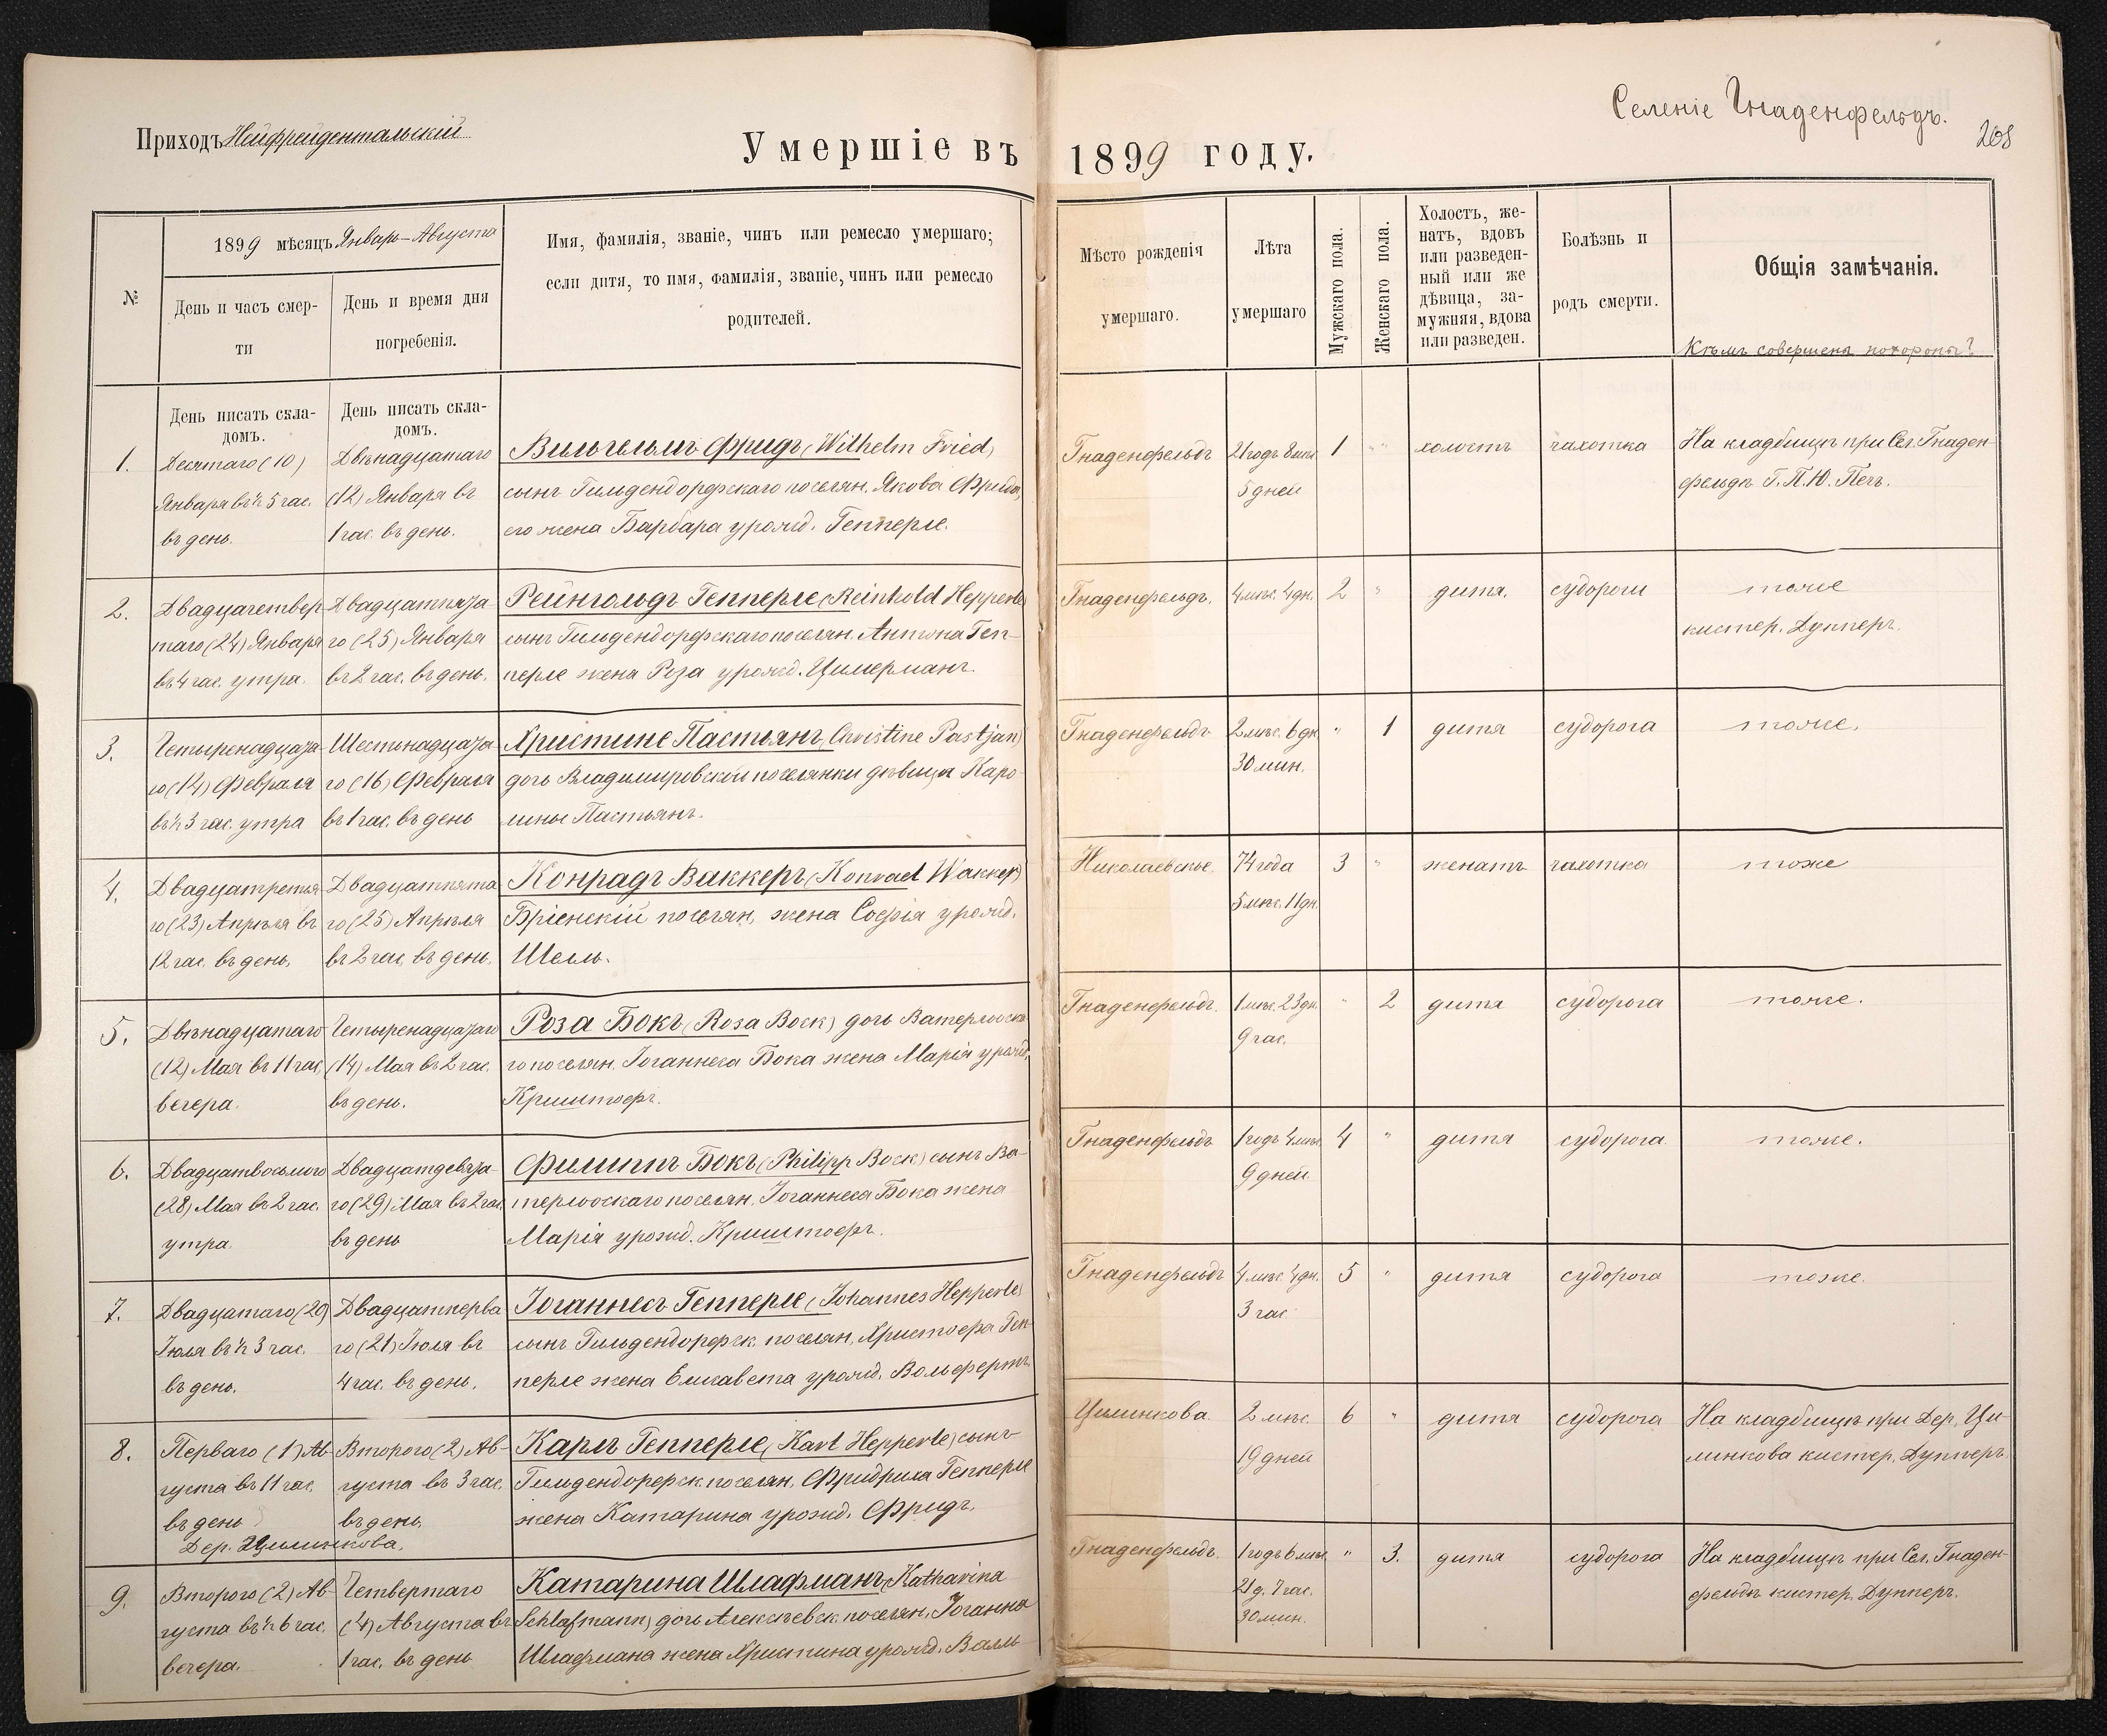 Приходъ Нейфрейдентальскій
Умершіе въ 1899 году.
Селеніе Гнаденфельдъ.
208
№
1899 мѣсяцъ Январь-Августа
День и часъ смер-
ти
День и время дня
погребенія.
Имя, фамилія, званіе, чинъ или ремесло умершаго;
если дитя, то имя, фамилія, званіе, чинъ или ремесло
родителей.
Мѣсто рожденія
умершаго.
Лѣта
умершаго
Мужскаго пола.
Женскаго пола.
Холостъ, же-
натъ, вдовъ
или разведен-
ный или же
дѣвица, за-
мужняя, вдова
или разведен.
Болѣзнь и
родъ смерти.
Общія замѣчанія.
Кѣмъ совершены похороны?
День писать скла-
домъ.
День писать скла-
домъ.
1.
Десятаго (10)
Января въ ½ 5 час.
въ день.
Двѣнадцатаго
(12) Января въ
1 час. въ день.
Вильгельмъ Фридъ (Wilhelm Fried)
сынъ Гильдендорфскаго поселян. Якова Фрида,
его жена Барбара урожд. Гепперле.
Гнаденфельдъ
21 годъ 8 мѣс.
5 дней
1
"
холостъ
чахотка
На кладбищѣ при Сел. Гнаден-
фельдъ Г. П. Ю. Печ.
2.
Двадцачетвер-
таго (24) Января
въ 4 час. утра.
Двадцатпята-
го (25) Января
въ 2 час. въ день.
Рейнгольдъ Гепперле (Reinhold Hepperle)
сынъ Гильдендорфскаго поселян. Антона Геп-
перле жена Роза урожд. Цимерманъ.
Гнаденфельдъ.
4 мѣс. 4 дн.
2
"
дитя.
судороги
тоже
кистер. Дупперъ.
3.
Четыренадцата-
го (14) Февраля
въ ½ 3 час. утра
Шестьнадцата-
го (16) Февраля
въ 1 час. въ день
Христине Пастьянъ (Christine Pastjan)
дочь Владимировской поселянки дѣвицы Каро-
лины Пастьянъ.
Гнаденфельдъ
2 мѣс. 6 дн.
30 мин.
"
1
дитя
судорога
тоже.
4.
Двадцатретья
го (23) Апрѣля въ
12 час. въ день.
Двадцатпята
го (25) Апрѣля
въ 2 час. въ день.
Конрадъ Ваккеръ (Konrad Wakker)
Бріенскій поселян, жена Софія урожд.
Шелль.
Николаевское.
74 года
5 мѣс. 11 дн.
3
"
женатъ
чахотка
тоже
5.
Двѣнадцатаго
(12) Мая въ 11 час.
вечера.
Четыренадцатаго
(14) Мая въ 2 час.
въ день.
Роза Бокъ (Rosa Bock) дочь Ватерлооска-
го поселян. Іоганнеса Бока жена Марія урожд.
Криштофъ.
Гнаденфельдъ.
1 мѣс. 23 дн.
9 час.
"
2
дитя
судорога
тоже.
6.
Двадцатвосьмого
(28) Мая въ 2 час.
утра.
Двадцатдевята-
го (29) Мая въ 2 час.
въ день
Филиппъ Бокъ (Philipp Bock) сынъ Ва-
терлооскаго поселян. Іоганнеса Бока жена
Марія урожд. Криштофъ.
Гнаденфельдъ
1 годъ 4 мѣс.
9 дней.
4
"
дитя
судорога.
тоже.
7.
Двадцатаго (20)
Іюля въ ½ 3 час.
въ день.
Двадцатперва
го (21) Іюля въ
4 час. въ день.
Іоганнесъ Гепперле (Johannes Hepperle)
сынъ Гильдендорфск. поселян. Христофа Геп-
перле жена Елисавета урожд. Вольфертъ.
Гнаденфельдъ
4 мѣс. 4 дн.
3 час.
5
"
дитя
судорога
тоже.
8.
Перваго (1) Ав-
густа въ 11 час.
въ день
Дер. Цилинкова.
Второго (2) Ав-
густа въ 3 час.
въ день.
Карлъ Гепперле (Karl Hepperle) сынъ
Гильдендорфск. поселян. Фридриха Гепперле
жена Катарина урожд. Фридъ.
Цилинкова.
2 мѣс.
19 дней
6
"
дитя
судорога
На кладбищѣ при Дер. Ци-
линкова кистер. Дупперъ.
9.
Второго (2) Ав-
густа въ ½ 6 час.
вечера.
Четвертаго
(4) Августа въ
1 час. въ день
Катарина Шлафманъ (Katharina
Schlafmann) дочь Алексѣевск. поселян. Іоганна
Шлафмана жена Христина урожд. Валль
Гнаденфельдъ.
1 годъ 6 мѣс.
21 д. 7 час.
30 мин.
"
3.
дитя
судорога
На кладбищѣ при Сел. Гнаден-
фельдъ кистер. Дупперъ.